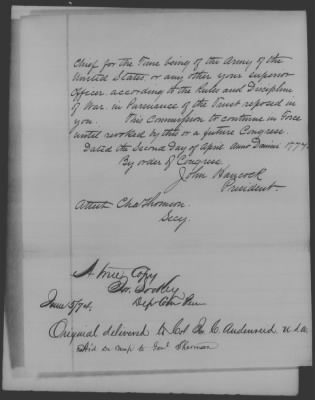 Chief for the Time being of the Army of the
United States or any other your superior
Officer according to the Rules and Discipline
of War, in Pursuance of the Trust reposed in
you. This Commission to continue in Force
until revoked by this or a future Congress.
Dated the Second Day of April Anno Domini 1777.
By order of Congress
John Hancock
President.
Attest Cha Thomson
Secy.
A true Copy
Dep
June 5/74.
Original delivered to Col C. U.S.A.
Aid de camp to Genl Sherman